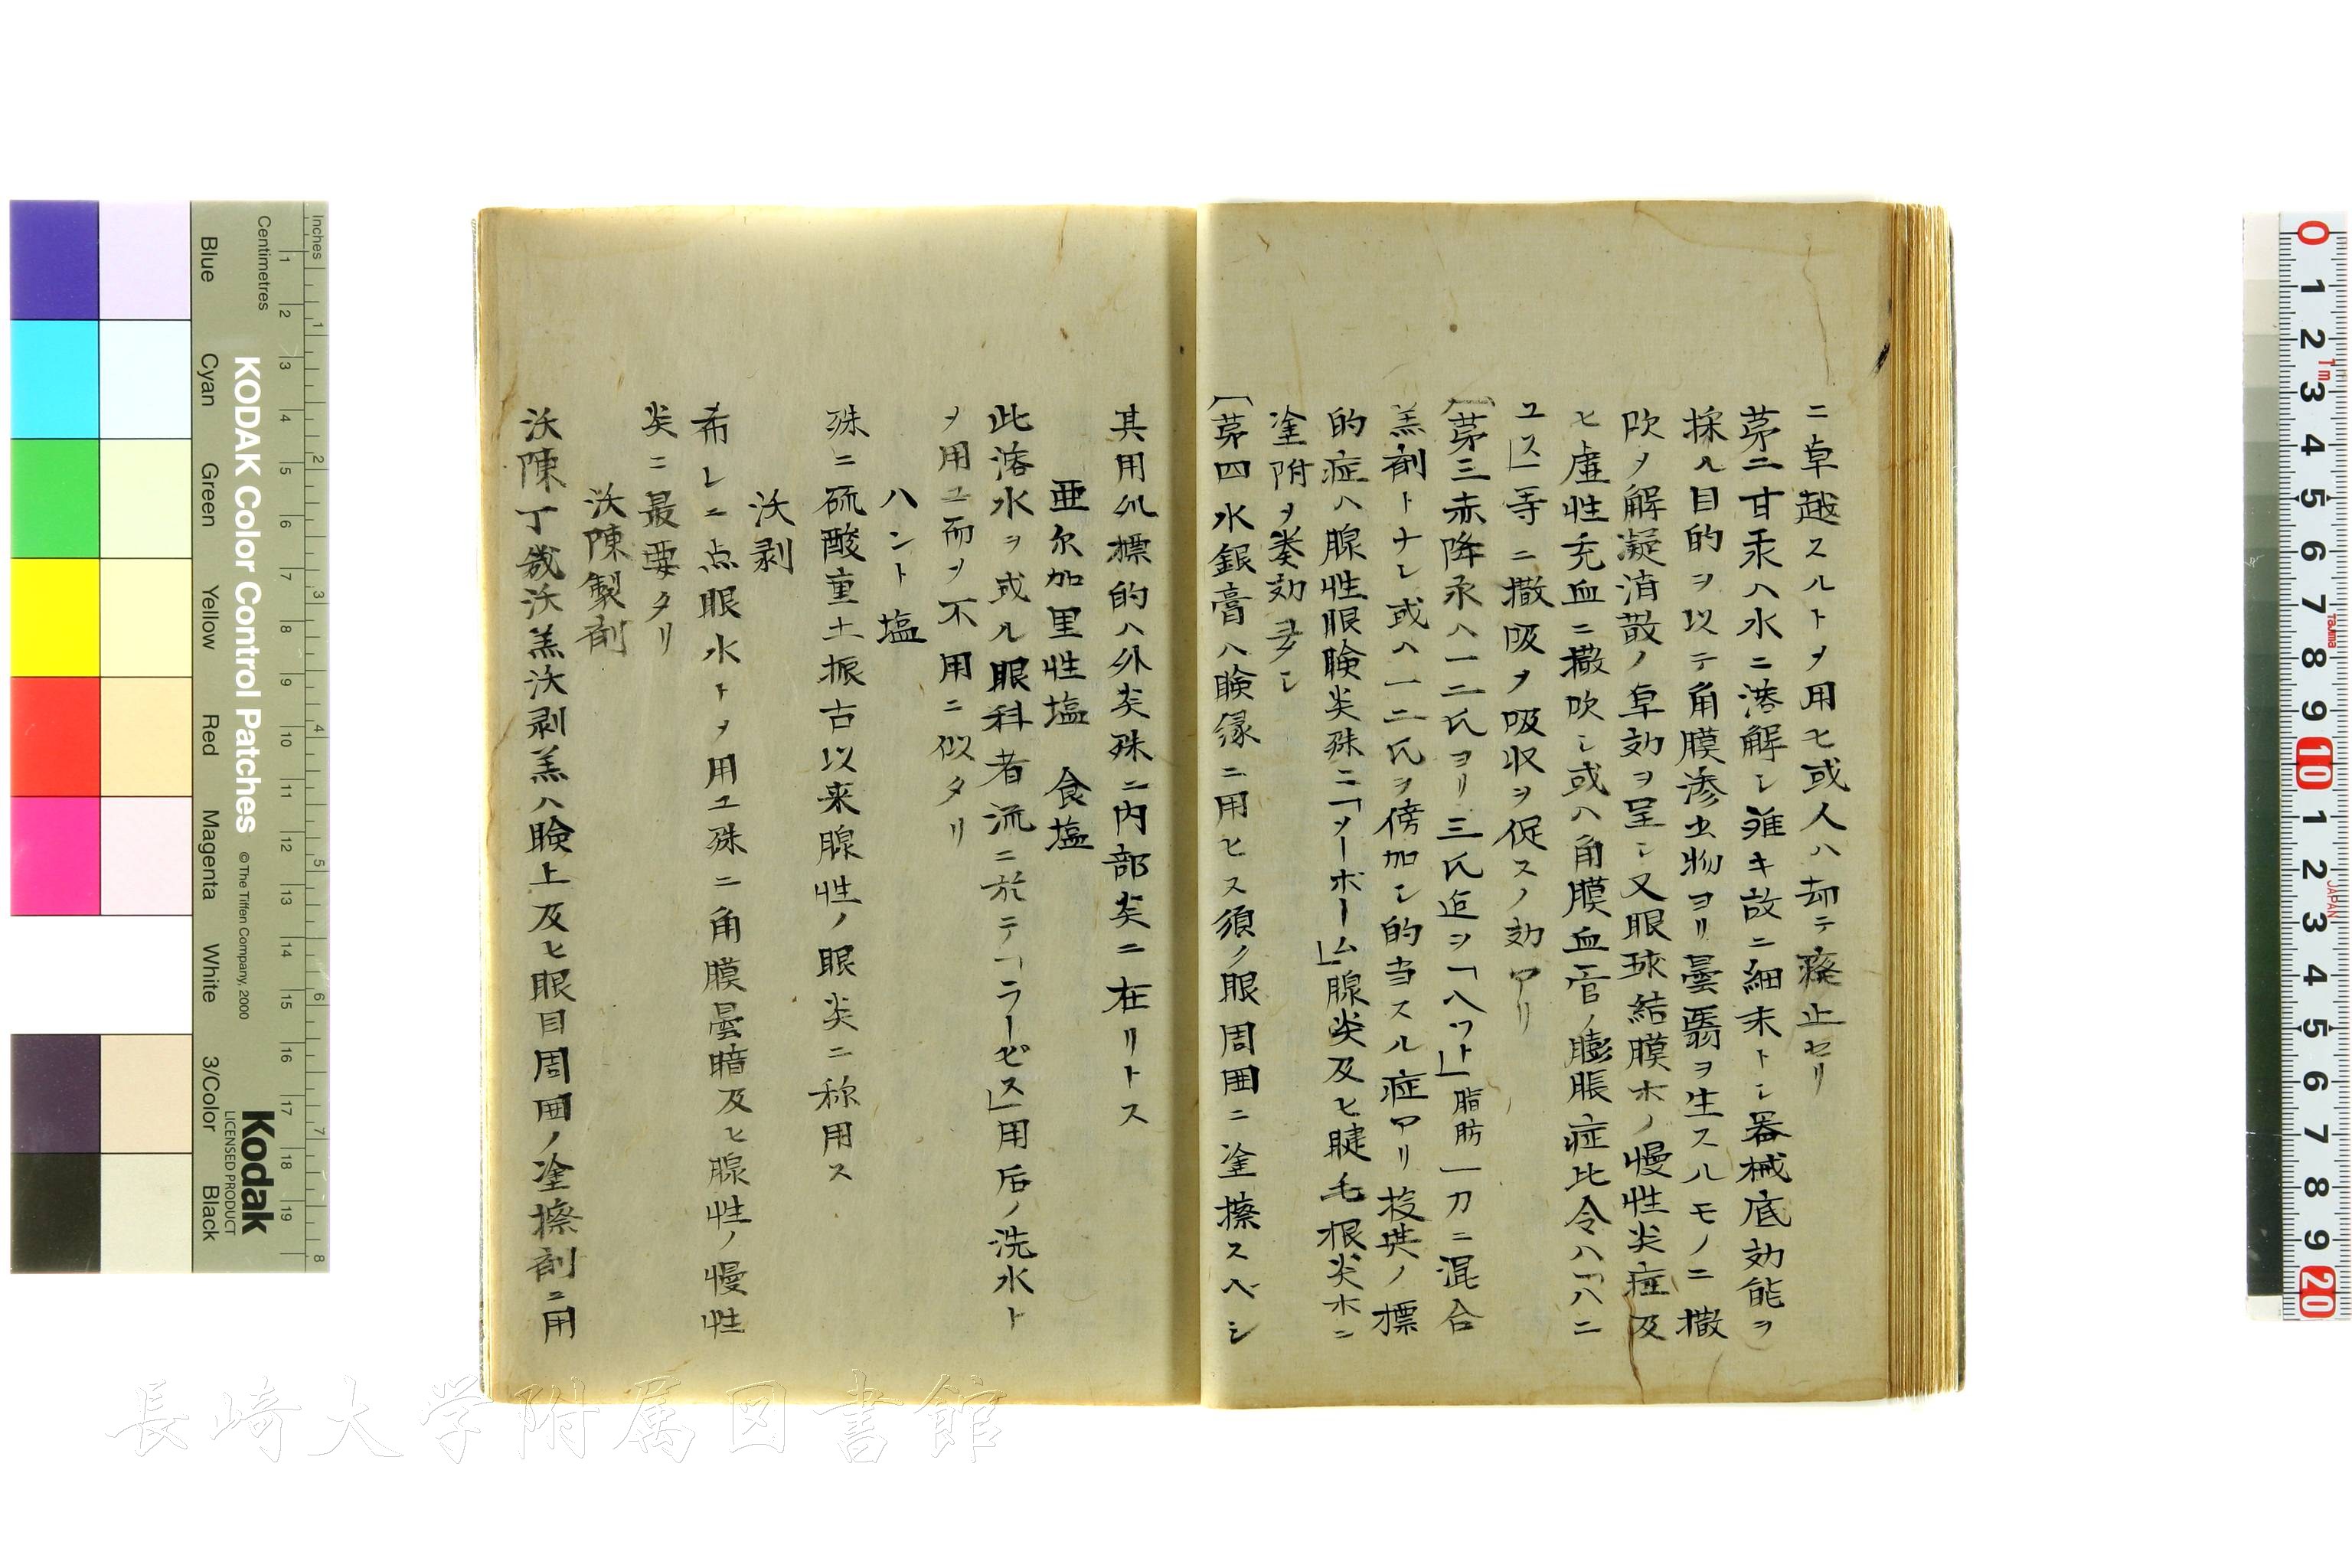 ニ卓越スルトヲ用ヒ或人ハ却テ癈止セリ
苐二甘汞ハ水ニ溶解シ難キ故ニ細末トシ器械底効能ヲ
採ル目的ヲ以テ角膜滲出物ヨリ曇翳ヲ生スルモノニ撒
吹ノ解凝消散ノ卓効ヲ呈シ又眼球結膜ホノ慢性炎症及
ヒ虚性充血ニ撒吹シ或ハ角膜血管ノ膨脹症比令ハ「ハニ
ユス」等ニ撒吸ヲ吸収ヲ促スノ効アリ
「苐三赤降汞ハ一二氏ヨリ三氏迄ヲ「ハツト」脂肪一刀ニ混合
羔剤トナシ或ハ一二氏ヲ傍加シ的当スル症アリ投與ノ標
的症ハ腺性眼瞼炎殊ニ「ソーボーム」腺炎及ヒ睫毛根炎ホニ
塗附ヲ奏効
「苐四水銀膏ハ瞼縁ニ用ヒス須ノ眼周囲ニ塗擦スベシ
其用処標的ハ外炎殊ニ内部炎ニ在リトス
亜尓加里性塩 食塩
此溶水ヲ或ル眼科者流ニ於テ「ラーゼス」用后ノ洗水ト
ヲ用ユ而ヲ不用ニ似タリ
ハント塩
殊ニ硫酸重土振古以来腺性ノ眼炎ニ称用ス
沃剥
希レニ点眼水トヲ用ユ殊ニ角膜曇暗及ヒ腺性ノ慢性
炎ニ最要タリ
沃陳製剤
沃陳丁幾沃羔沃剥羔ハ瞼上及ヒ眼目周囲ノ塗擦剤ニ用
長崎大学附属図書館
KODAK Color Control Patches
©The Tiffen Company, 2000
Kodak
LICENSED PRODUCT
Inches
Centimetres
Blue
Cyan
Green
Yellow
Red
Magenta
White
3/Color
Black
1 2 3 4 5 6 7 8 9 10 11 12 13 14 15 16 17 18 19
1 2 3 4 5 6 7 8
0 1 2 3 4 5 6 7 8 9 10 1 2 3 4 5 6 7 8 9 20
1m
Tajima
JAPAN